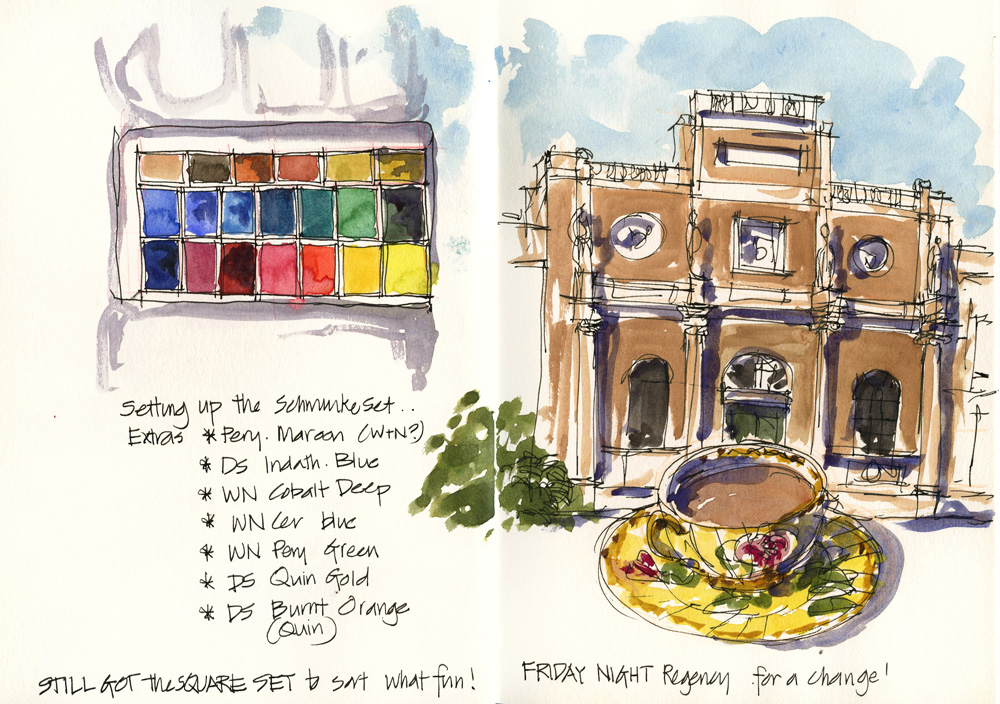 Setting up the Schminke set..
Extras * Pery. Maroon (W+N?)
* DS Indath. Blue
* WN Cobalt Deep
* WN Cer blue
* WN Pery Green
* DS Quin Gold
* DS Burnt Orange
(Quin)
STILL GOT the SQUARE SET to sort what fun!
FRIDAY NIGHT Regency for a change!